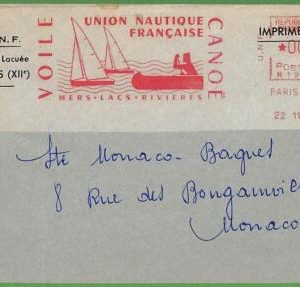 N. F.
Lacuée
S (XIIᵉ)
VOILE
UNION NAUTIQUE
FRANÇAISE
CANOË
MERS · LACS · RIVIÈRES
IMPRIME
REPUB
U.N.F
*00
POST
N 19
PARIS
22 11
Ste Monaco-Bagues
8 Rue des Bougainvil
Monaco